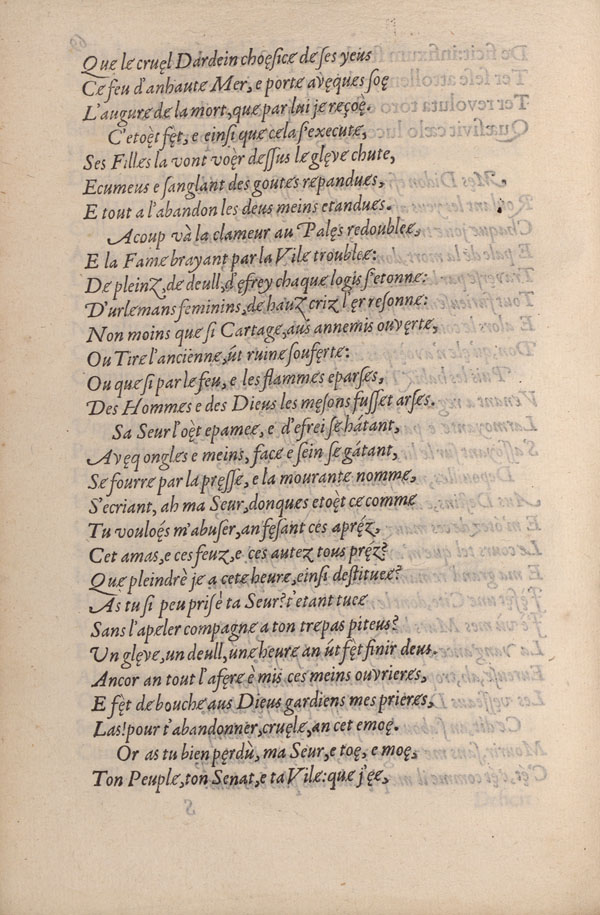 Que le cruęl Dardein choęsice de ses yeus
Ce feu d'anhaute Mer, e porte avęques soę
L'augure de la mort, que par lui je reçoę.
C'etoęt fęt, e einsi que cela s'execute,
Ses Filles la vont voęr dessus le glęve chute,
Ecumeus e sanglant des goutes repandues,
E tout a l'abandon les deus meins etandues.
Acoup và la clameur au Palęs redoublee,
E la Fame brayant par la Vile troublee:
De pleinz, de deull, d'ęfrey chaque logis s'etonne:
D'urlemans feminins, de hauz criz l'ęr resonne:
Non moins que si Cartage, aus annemis ouvęrte,
Ou Tire l'ancienne, út ruine souferte:
Ou que si par le feu, e les flammes eparses,
Des Hommes e des Dieus les męsons fusset arses.
Sa Seur l'oęt epamee, e d'efrei se hátant,
Avęq ongles e meins, face e sein se gátant,
Se fourre par la pręsse, e la mourante nomme,
S'ecriant, ah ma Seur, donques etoęt ce comme
Tu vouloęs m'abuser, an fęsant ces apręz,
Cet amas, e ces feuz, e ces autez tous pręz?
Que pleindrè je a cete heure, einsi destituee?
As tu si peu prisè ta Seur? t'etant tuee
Sans l'apeler compagne a ton trepas piteus?
Un glęve, un deull, une heure an út fęt finir deus.
Ancor an tout l'afęre è mis ces meins ouvrieres,
E fęt de bouche aus Dieus gardiens mes prieres,
Las! pour t'abandonner, cruęle, an cet emoę.
Or as tu bien pęrdù, ma Seur, e toę, e moę,
Ton Peuple, ton Senat, e ta Vile: que j'ęe,
S